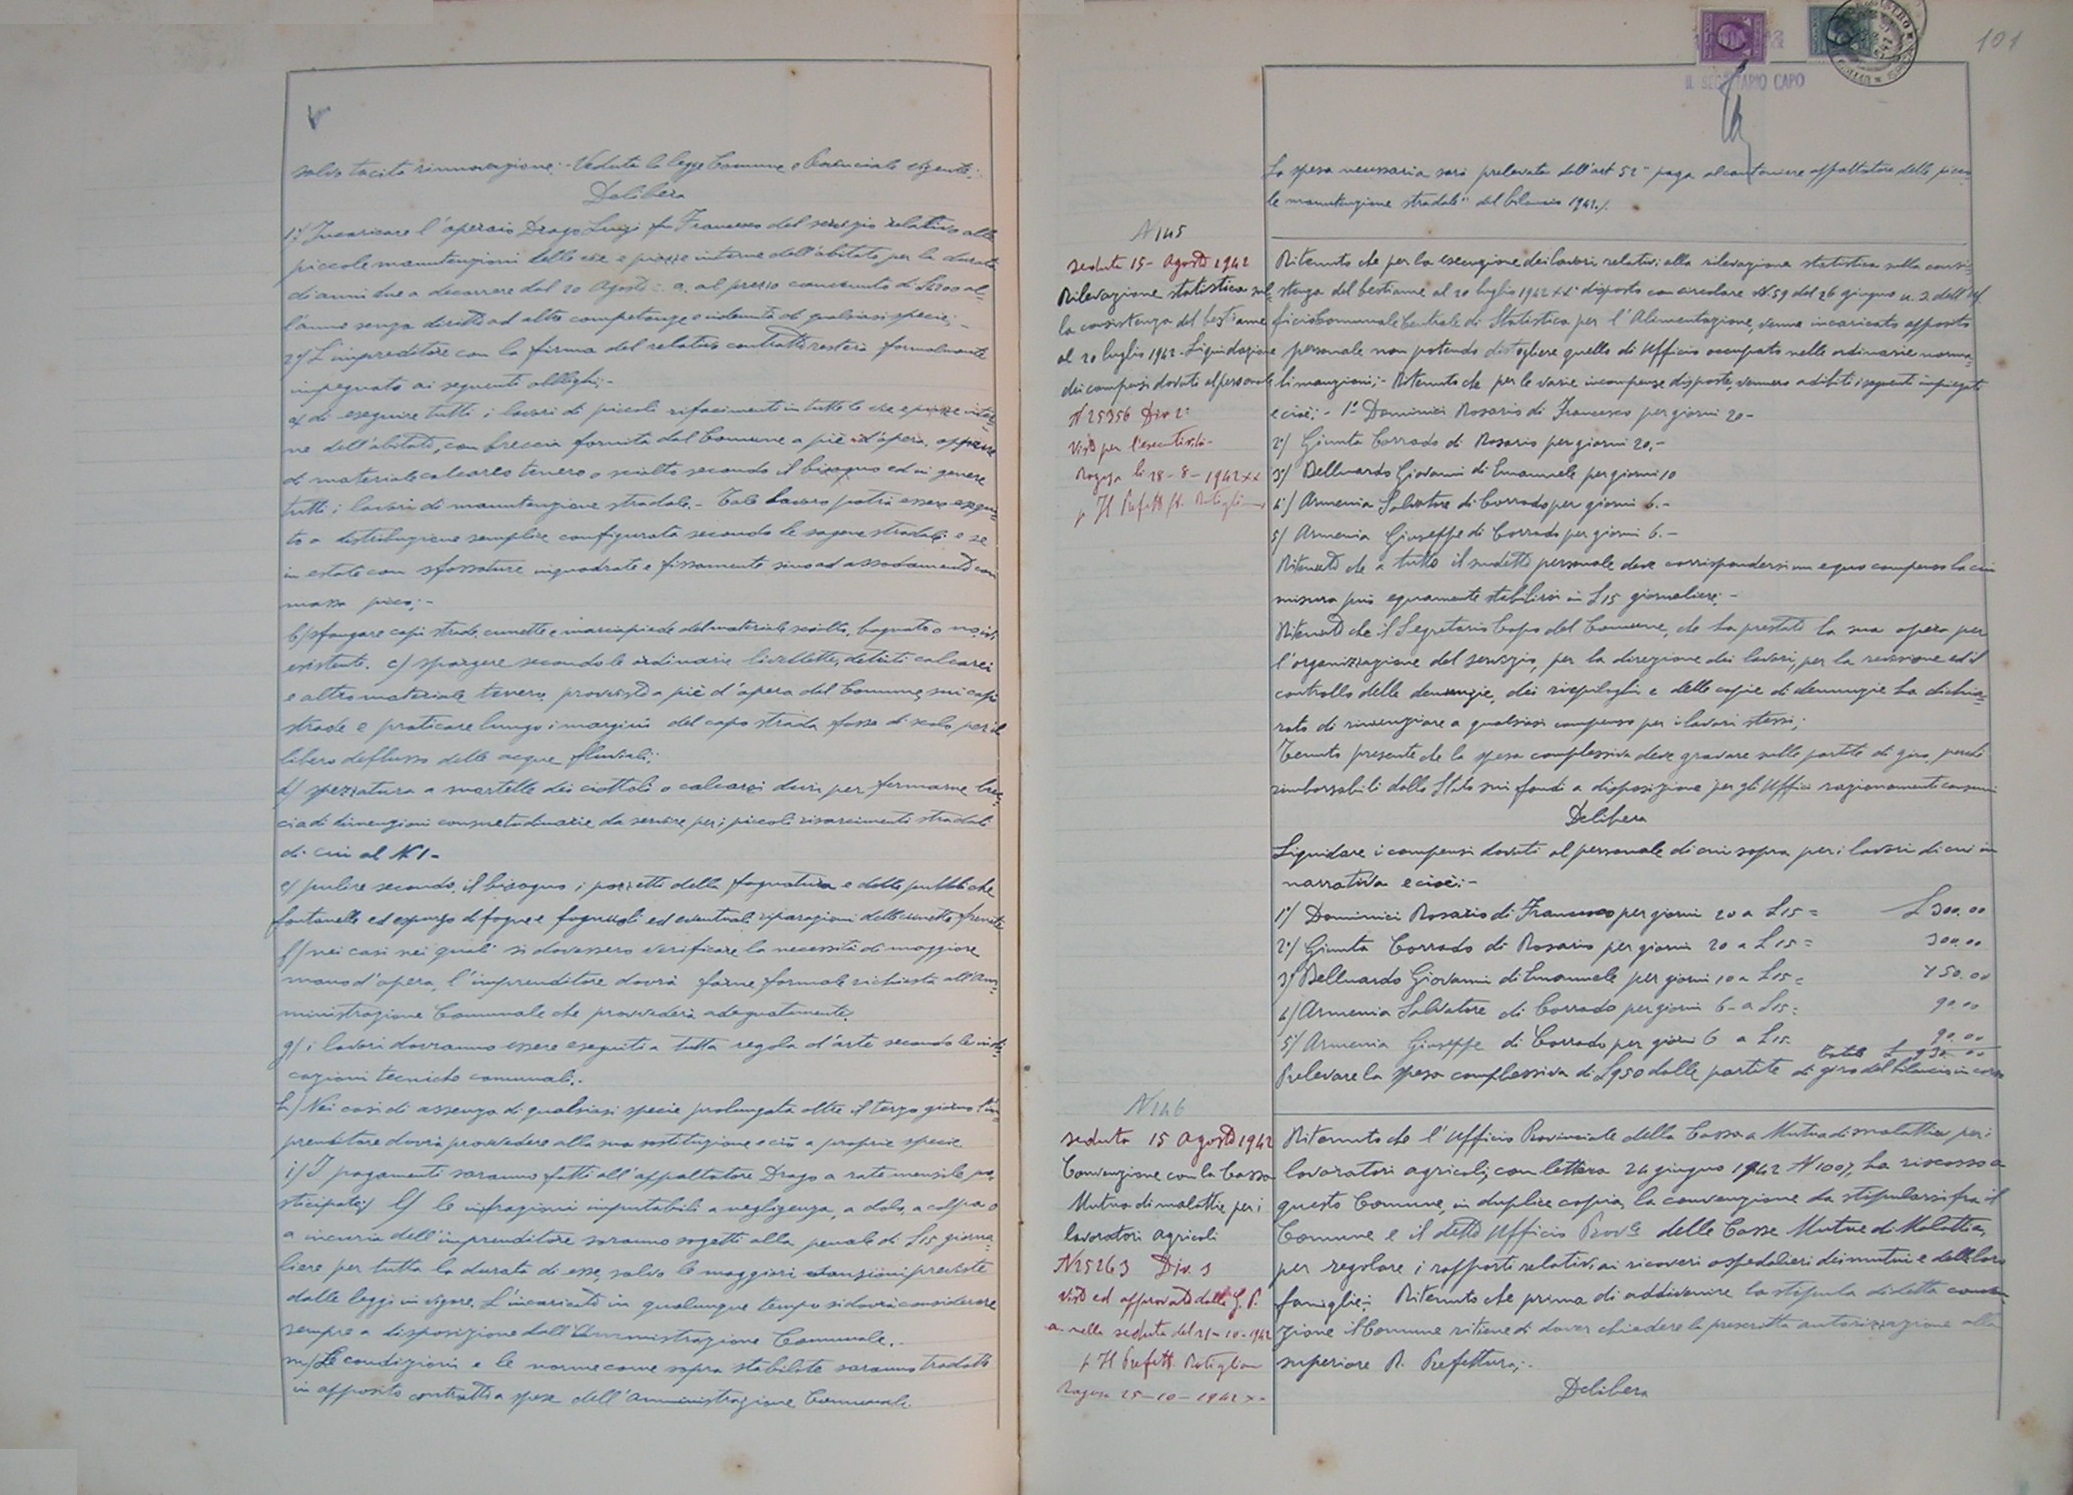 salvo tacita rinnovazione:- Veduta la legge Comune e Provinciale vigente;
Delibera
1°/ Incaricare l'operaio Drago Luigi fu Francesco del servizio relativo alle
piccole manutenzioni delle vie e piazze interne dell'abitato, per la durata
di anni due a decorrere dal 20 Agosto c. a. al prezzo convenuto di
l'anno senza diritto ad altre competenze o indennità di qualsiasi specie;-
2°/ L'impreditore con la firma del relativo contratto resterà formalmente
impegnato ai seguenti obblighi;-
a) di eseguire tutti i lavori di piccoli rifacimenti in tutte le vie e piazze inter-
ne dell'abitato, con breccia fornita dal Comune a piè d'opera, oppure
di materiale calcareo tenero o sciolto secondo il bisogno ed in genere
tutti i lavori di manutenzione stradale.- Tale lavoro potrà essere esegui-
to a distribuzione semplice configurata secondo le sagome stradali e se
in estate con sfossature inquadrate e fissamente sino ad assodamento con
massa pico;-
b) sfangare capi strade, cunette e marciapiede del materiale sciolto, bagnato o no, ivi
esistente. c) spargere secondo le ordinarie livellette, detriti calcarei
e altro materiale tenero, provvisto a piè d'opera dal Comune, sui capi
strade e praticare lungo i margini del capo strada fosse di scolo, per il
libero deflusso delle acque fluviali;
d) spezzatura a martello dei ciottoli o calcarei duri per formarne brec-
cia di dimenzioni consuetudinarie da servire per i piccoli risarcimenti stradali
di cui al N 1-
e) pulire secondo il bisogno i pozzetti della fognatura e delle pubbliche
fontanelle ed espurgo di fogne e fognuoli ed eventuali riparazioni delle cunette
f) nei casi nei quali si dovessero verificare la necessità di maggiore
mano d'opera, l'imprenditore dovrà farne formale richiesta all'Am-
ministrazione Comunale che provvederà adeguatamente.
g) i lavori dovranno essere eseguiti a tutta regola d'arte secondo le indi-
cazioni tecniche comunali;.
h) Nei casi di assenza di qualsiasi specie prolungata oltre il terzo giorno l'im-
prenditore dovrà provvedere alla sua sostituzione e ciò a proprie spese
i) I pagamenti saranno fatti all'appaltatore Drago a rate mensile po-
sticipate; l) le infrazioni imputabili a negligenza, a dolo, a colpa o
a incuria dell'imprenditore saranno sogetti alla penale di L 15 giorna-
liere per tutta la durata di esse, salvo le maggiori sanzioni previste
dalle leggi in vigore. L'incaricato in qualunque tempo si dovrà considerare
sempre a disposizione dell'Amministrazione Comunale..
m) Le condizioni e le norme come sopra stabilite saranno tradotte
in apposito contratto a spese dell'Amministrazione Comunale.
101
IL SEGRETARIO CAPO
La spesa necessaria sarà prelevata dall'art 52 "paga al cantoniere appaltatore delle picco-
le manutenzione stradali" del bilancio 1942./.
N 145
seduta 15- Agosto 1942
Rilevazione statistica sul-
la consistenza del bestiame
al 20 luglio 1942- Liquidazione
dei compensi dovuti al personale
N 25356 Div 2ª
Visto per l'esecutività-
Ragusa li 28-8-1942 XX
p Il Prefetto
Ritenuto che per la esecuzione dei lavori relativi alla rilevazione statistica sulla consi-
stenza del bestiame al 20 luglio 1942 XX° disposto con circolare N 59 del 26 giugno u. s. dell'Uf-
ficio Comunale Centrale di Statistica per l'Alimentazione, venne incaricato apposito
personale non potendo distogliere quello di Ufficio occupato nelle ordinarie norma-
li manzioni;- Ritenuto che per le varie incompense disposte, vennero adibiti i seguenti impiegati
e cioè:- 1° Dominici Rosario di Francesco per giorni 20-
2°/ Giunta Corrado di Rosario per giorni 20.-
3°/ Belluardo Giovanni di Emanuele per giorni 10
4°/ Armenia Salvatore di Corrado per giorni 6.-
5/ Armenia Giuseppe di Corrado per giorni 6.-
Ritenuto che a tutto il sudetto personale deve corrispondersi un equo compenso la cui
misura può equamente stabilirsi in L 15 giornaliere;-
Ritenuto che il Segretario Capo del Comune, che ha prestato la sua opera per
l'organizzazione del servizio, per la direzione dei lavori, per la revisione ed il
controllo delle denunzie, dei riepiloghi e delle copie di denunzie ha dichia-
rato di rinunziare a qualsiasi compenso per i lavori stessi;
Tenuto presente che la spesa complessiva deve gravare sulle partite di giro, perchè
rimborsabili dallo Stato sui fondi a disposizione per gli Uffici razionamento consumi
Delibera
Liquidare i compensi dovuti al personale di cui sopra per i lavori di cui in
narrativa e cioè:-
1°/ Dominici Rosario di Francesco per giorni 20 a L 15 = L 300.00
2°/ Giunta Corrado di Rosario per giorni 20 a L 15 = 300.00
3°/ Belluardo Giovanni di Emanuele per giorni 10 a L 15 = 150.00
4/ Armenia Salvatore di Corrado per giorni 6- a L 15 = 90.00
5°/ Armenia Giuseppe di Corrado per giorni 6 a L 15 90.00
Totale L 930.00
Prelevare la spesa complessiva di L 950 dalle partite di giro del bilancio in corso
N 146
seduta 15 agosto 1942
Convenzione con la Cassa
Mutua di malattie per i
lavoratori agricoli
N 25263 Div. 3
Visto ed approvato dalla G. P.
a. nella seduta del 21-10-1942
p Il Prefetto
Ragusa 25-10-1942 XX
Ritenuto che l'Ufficio Provinciale della Cassa Mutua di malattia per i
lavoratori agricoli, con lettera 24 giugno 1942 N 1007, ha riscosso a
questo Comune, in duplice copia, la convenzione da stipularsi fra il
Comune e il detto Ufficio Prov.le delle Casse Mutue di Malattia,
per regolare i rapporti relativi ai ricoveri ospedalieri dei mutui e delle loro
famiglie; Ritenuto che prima di addivenire la stipula di detta conven-
zione il Comune ritiene di dover chiedere la prescritta autorizzazione alla
superiore R. Prefettura;.
Delibera